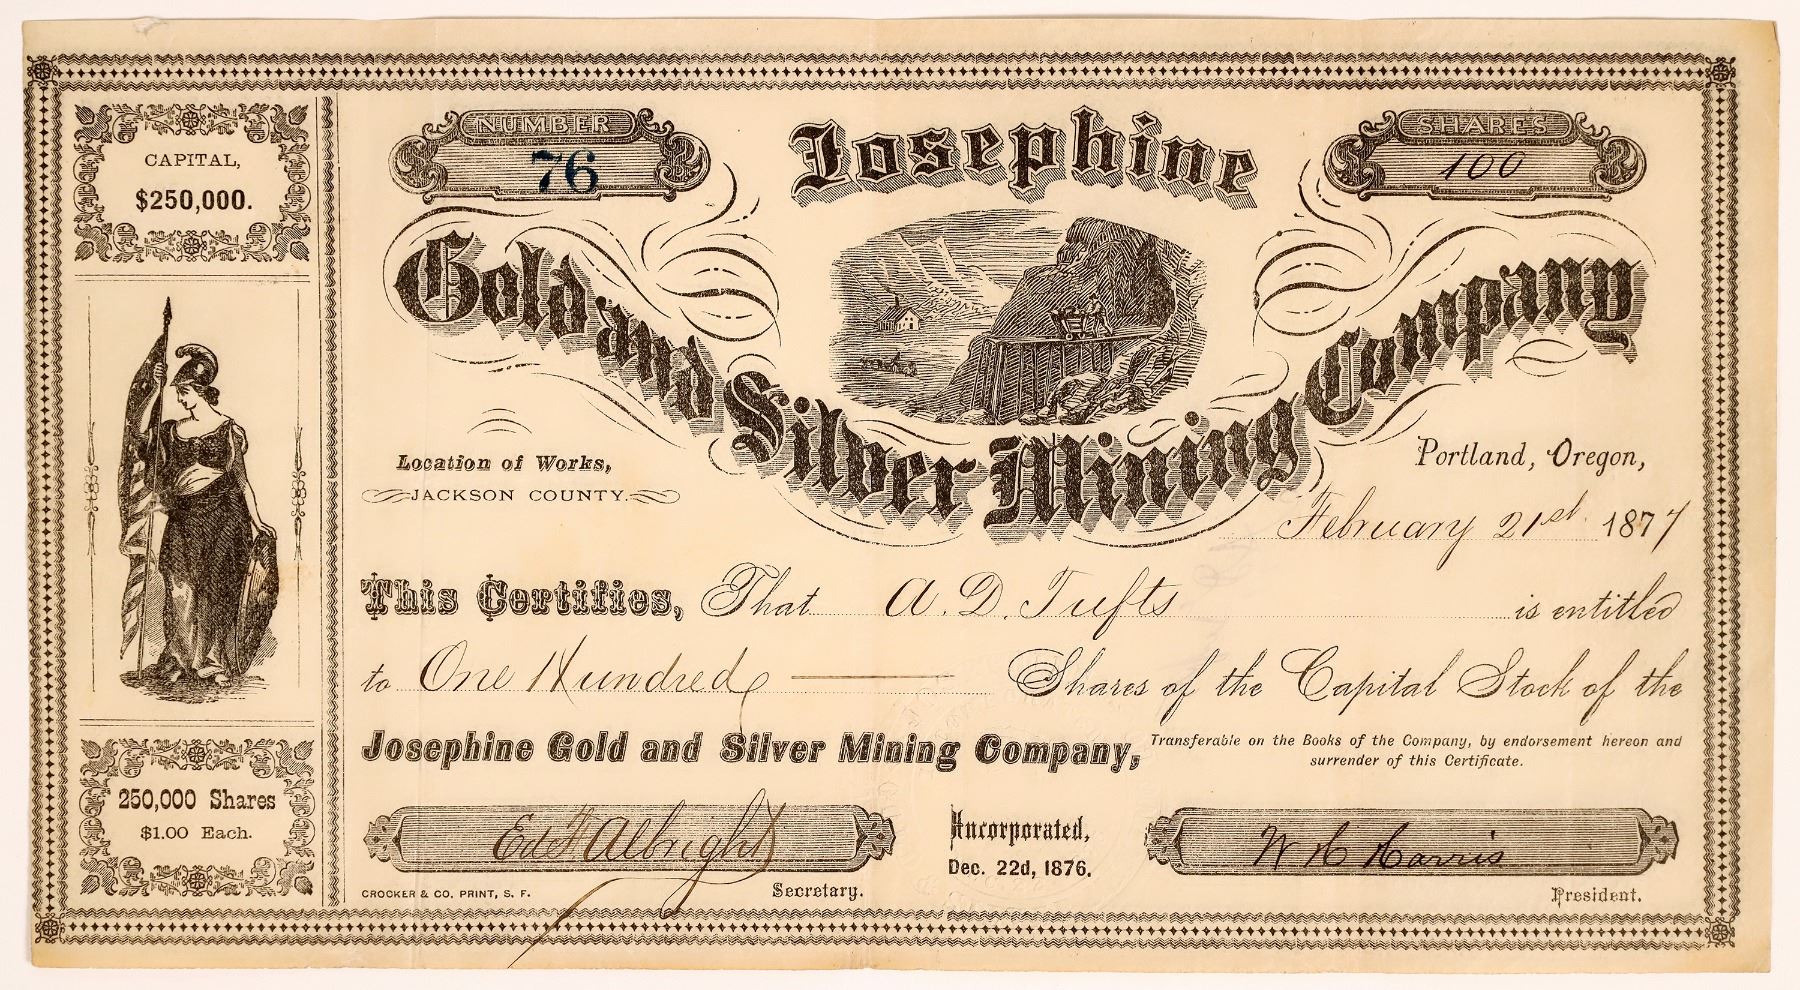 CAPITAL,
$250,000.
250,000 Shares
$1.00 Each.
NUMBER
76
Josephine
SHARES
100
Gold and Silver Mining Company
Location of Works,
JACKSON COUNTY.
Portland, Oregon,
February 21st 1877
This Certifies, That A. D. Tufts is entitled
to One Hundred Shares of the Capital Stock of the
Josephine Gold and Silver Mining Company, Transferable on the Books of the Company, by endorsement hereon and
surrender of this Certificate.
Ed F Albright
Secretary.
Incorporated,
Dec. 22d, 1876.
W H Harris
President.
CROCKER & CO. PRINT, S. F.